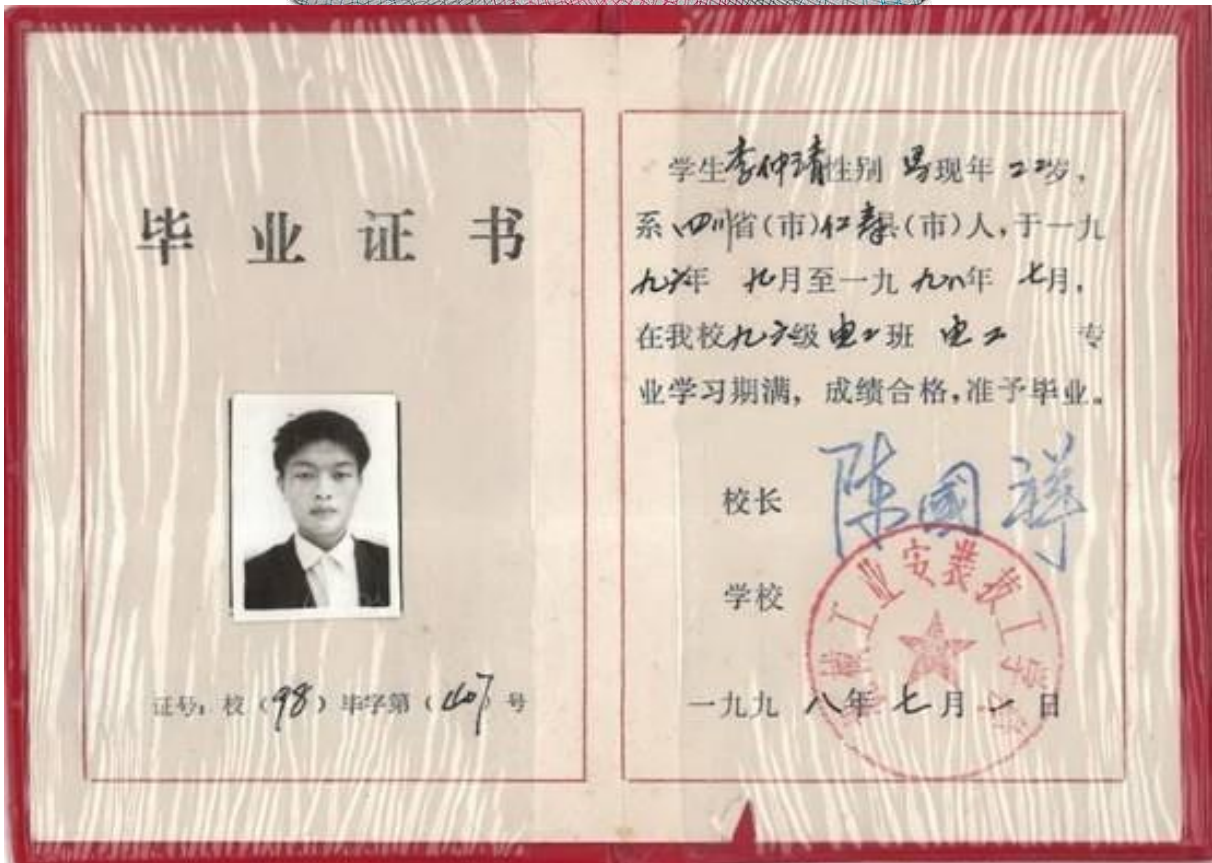 毕业证书
证号：校（98）毕字第（407号
学生李仲清性别 男现年 二二岁，
系四川省(市)仁寿县(市)人，于一九
九六年 九月至一九九八年 七月，
在我校九六级电工班 电工 专
业学习期满，成绩合格，准予毕业。
校长 陈國祥
学校
工业安装技工学校
一九九八年七月一日